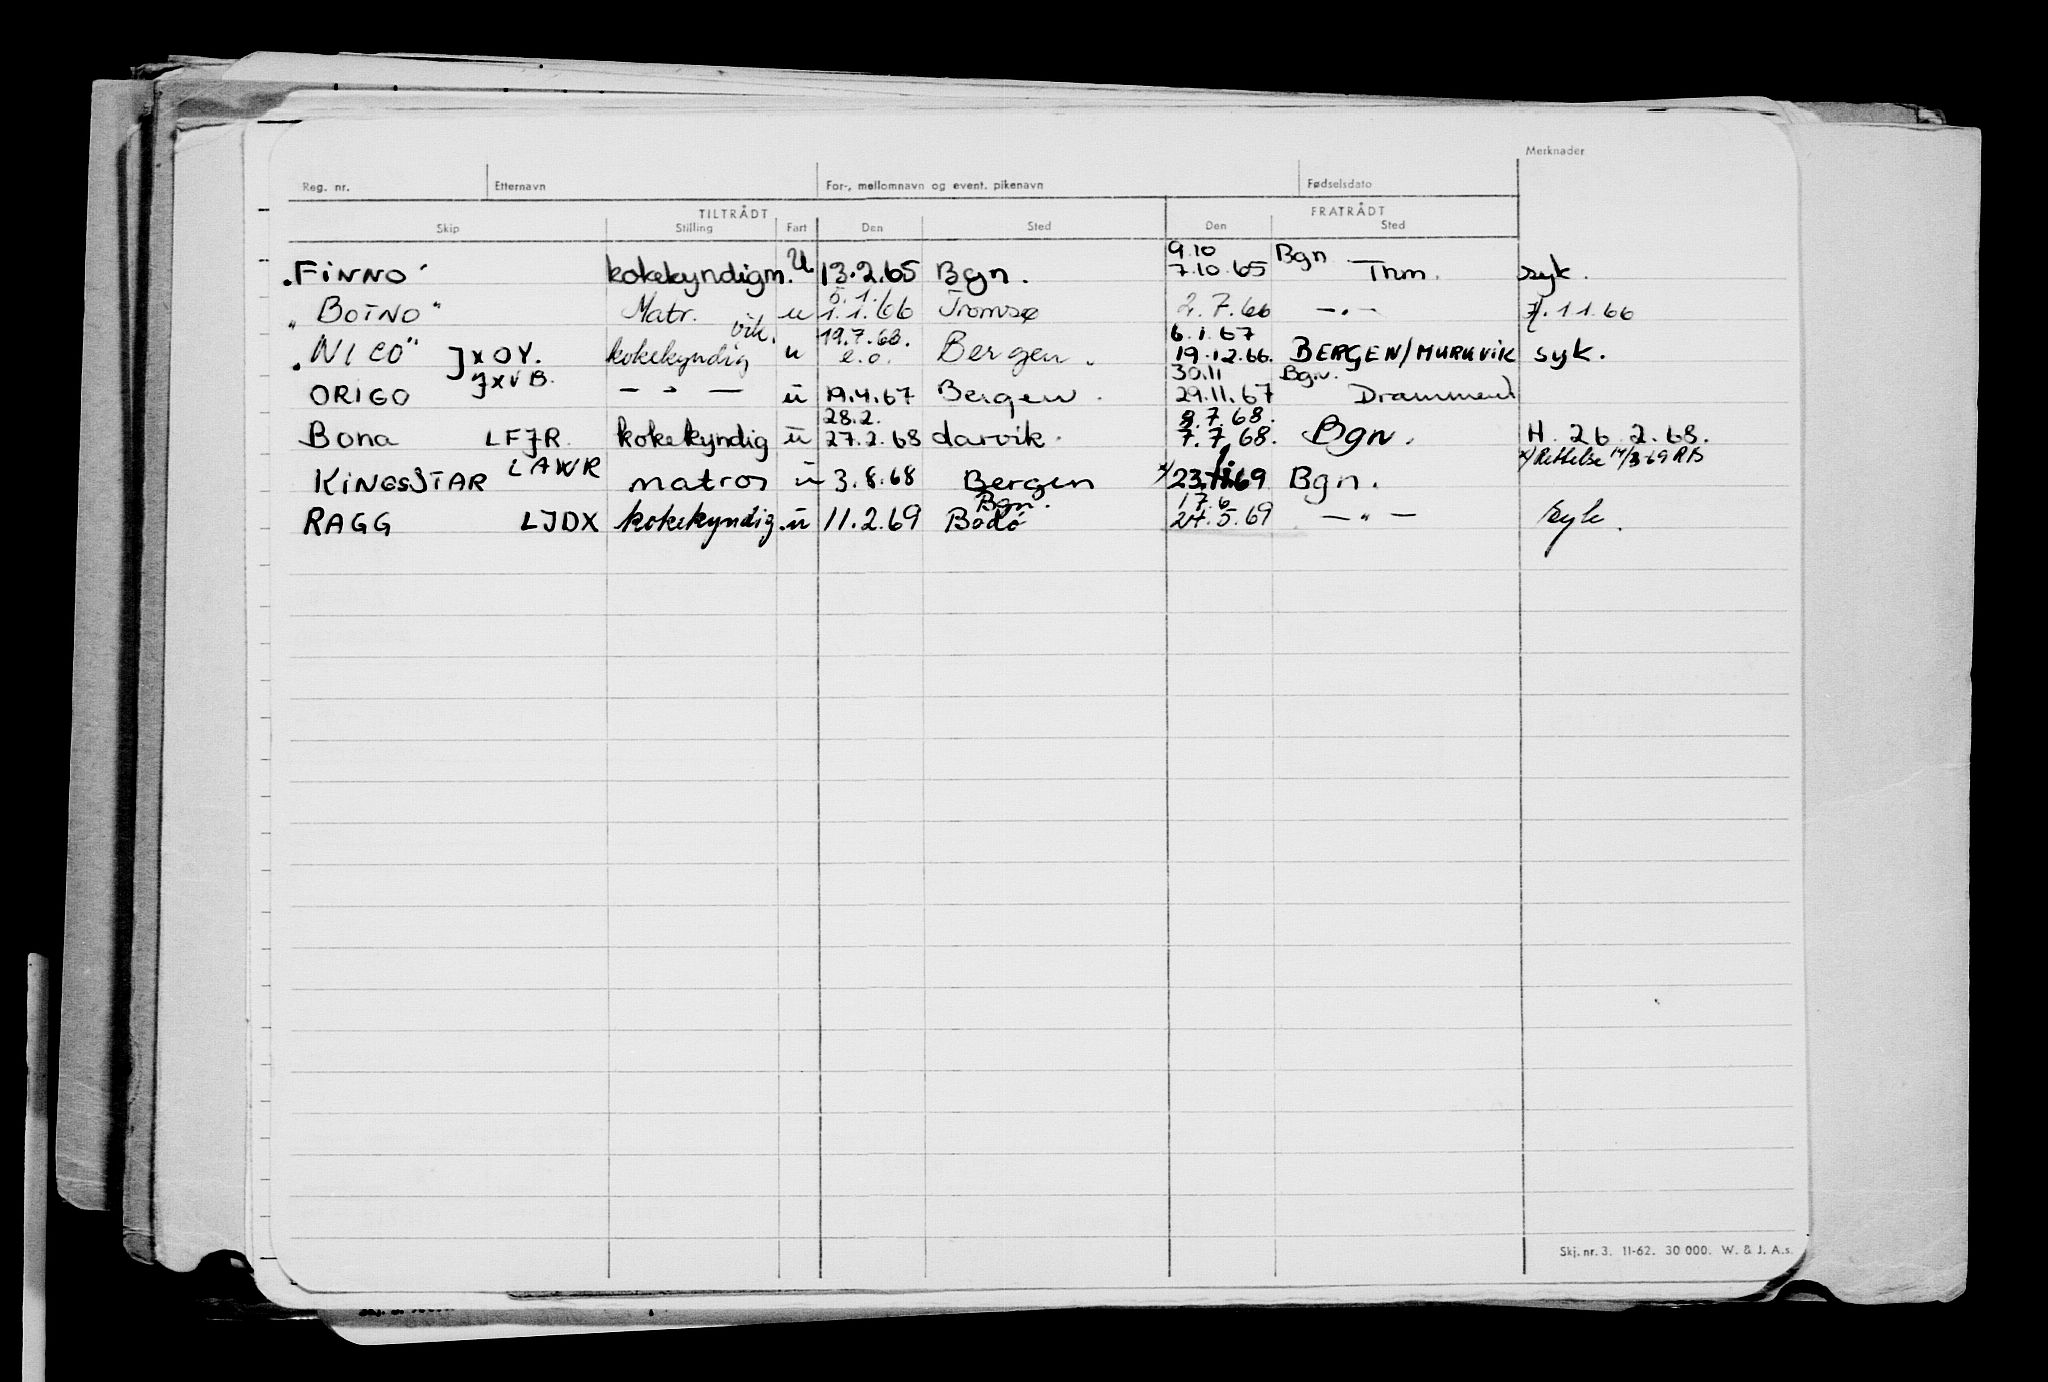 Merknader
Reg. nr. Etternavn For-, mellomnavn og event. pikenavn Fødselsdato
TILTRÅDT FRATRÅDT
Skip Stilling Fart Den Sted Den Sted
9.10 Bgn
"FINNO" kokekyndigm. U 13.2.65 Bgn. 7.10.65 Thm. syk.
5.1.
"BOTNO" Matr. u 1.1.66 Tromsø 2.7.66 — " — H. 1 1.66
vik. 19.7.66. 6.1.67
"NICO" JXOY. kokekyndig u e.o. Bergen. 19.12.66. BERGEN/MURUVIK syk.
JXVB. 30.11 Bgn.
ORIGO — " — u 19.4.67 Bergen. 29.11.67 Drammen
28.2. 8.7.68.
Bona LFJR. kokekyndig u 27.2.68 Larvik. 7.7.68. Bgn. H. 26.2.68.
LAWR x/ Rettelse 14/3-69 RB
KINGSSTAR matros u 3.8.68 Bergen x/ 23.1.69 Bgn.
Bgn. 17.6
RAGG LJDX kokekyndig. u 11.2.69 Bodø 24.5.69 — " — Syk.
Skj. nr. 3. 11-62. 30 000. W. & J. A.s.